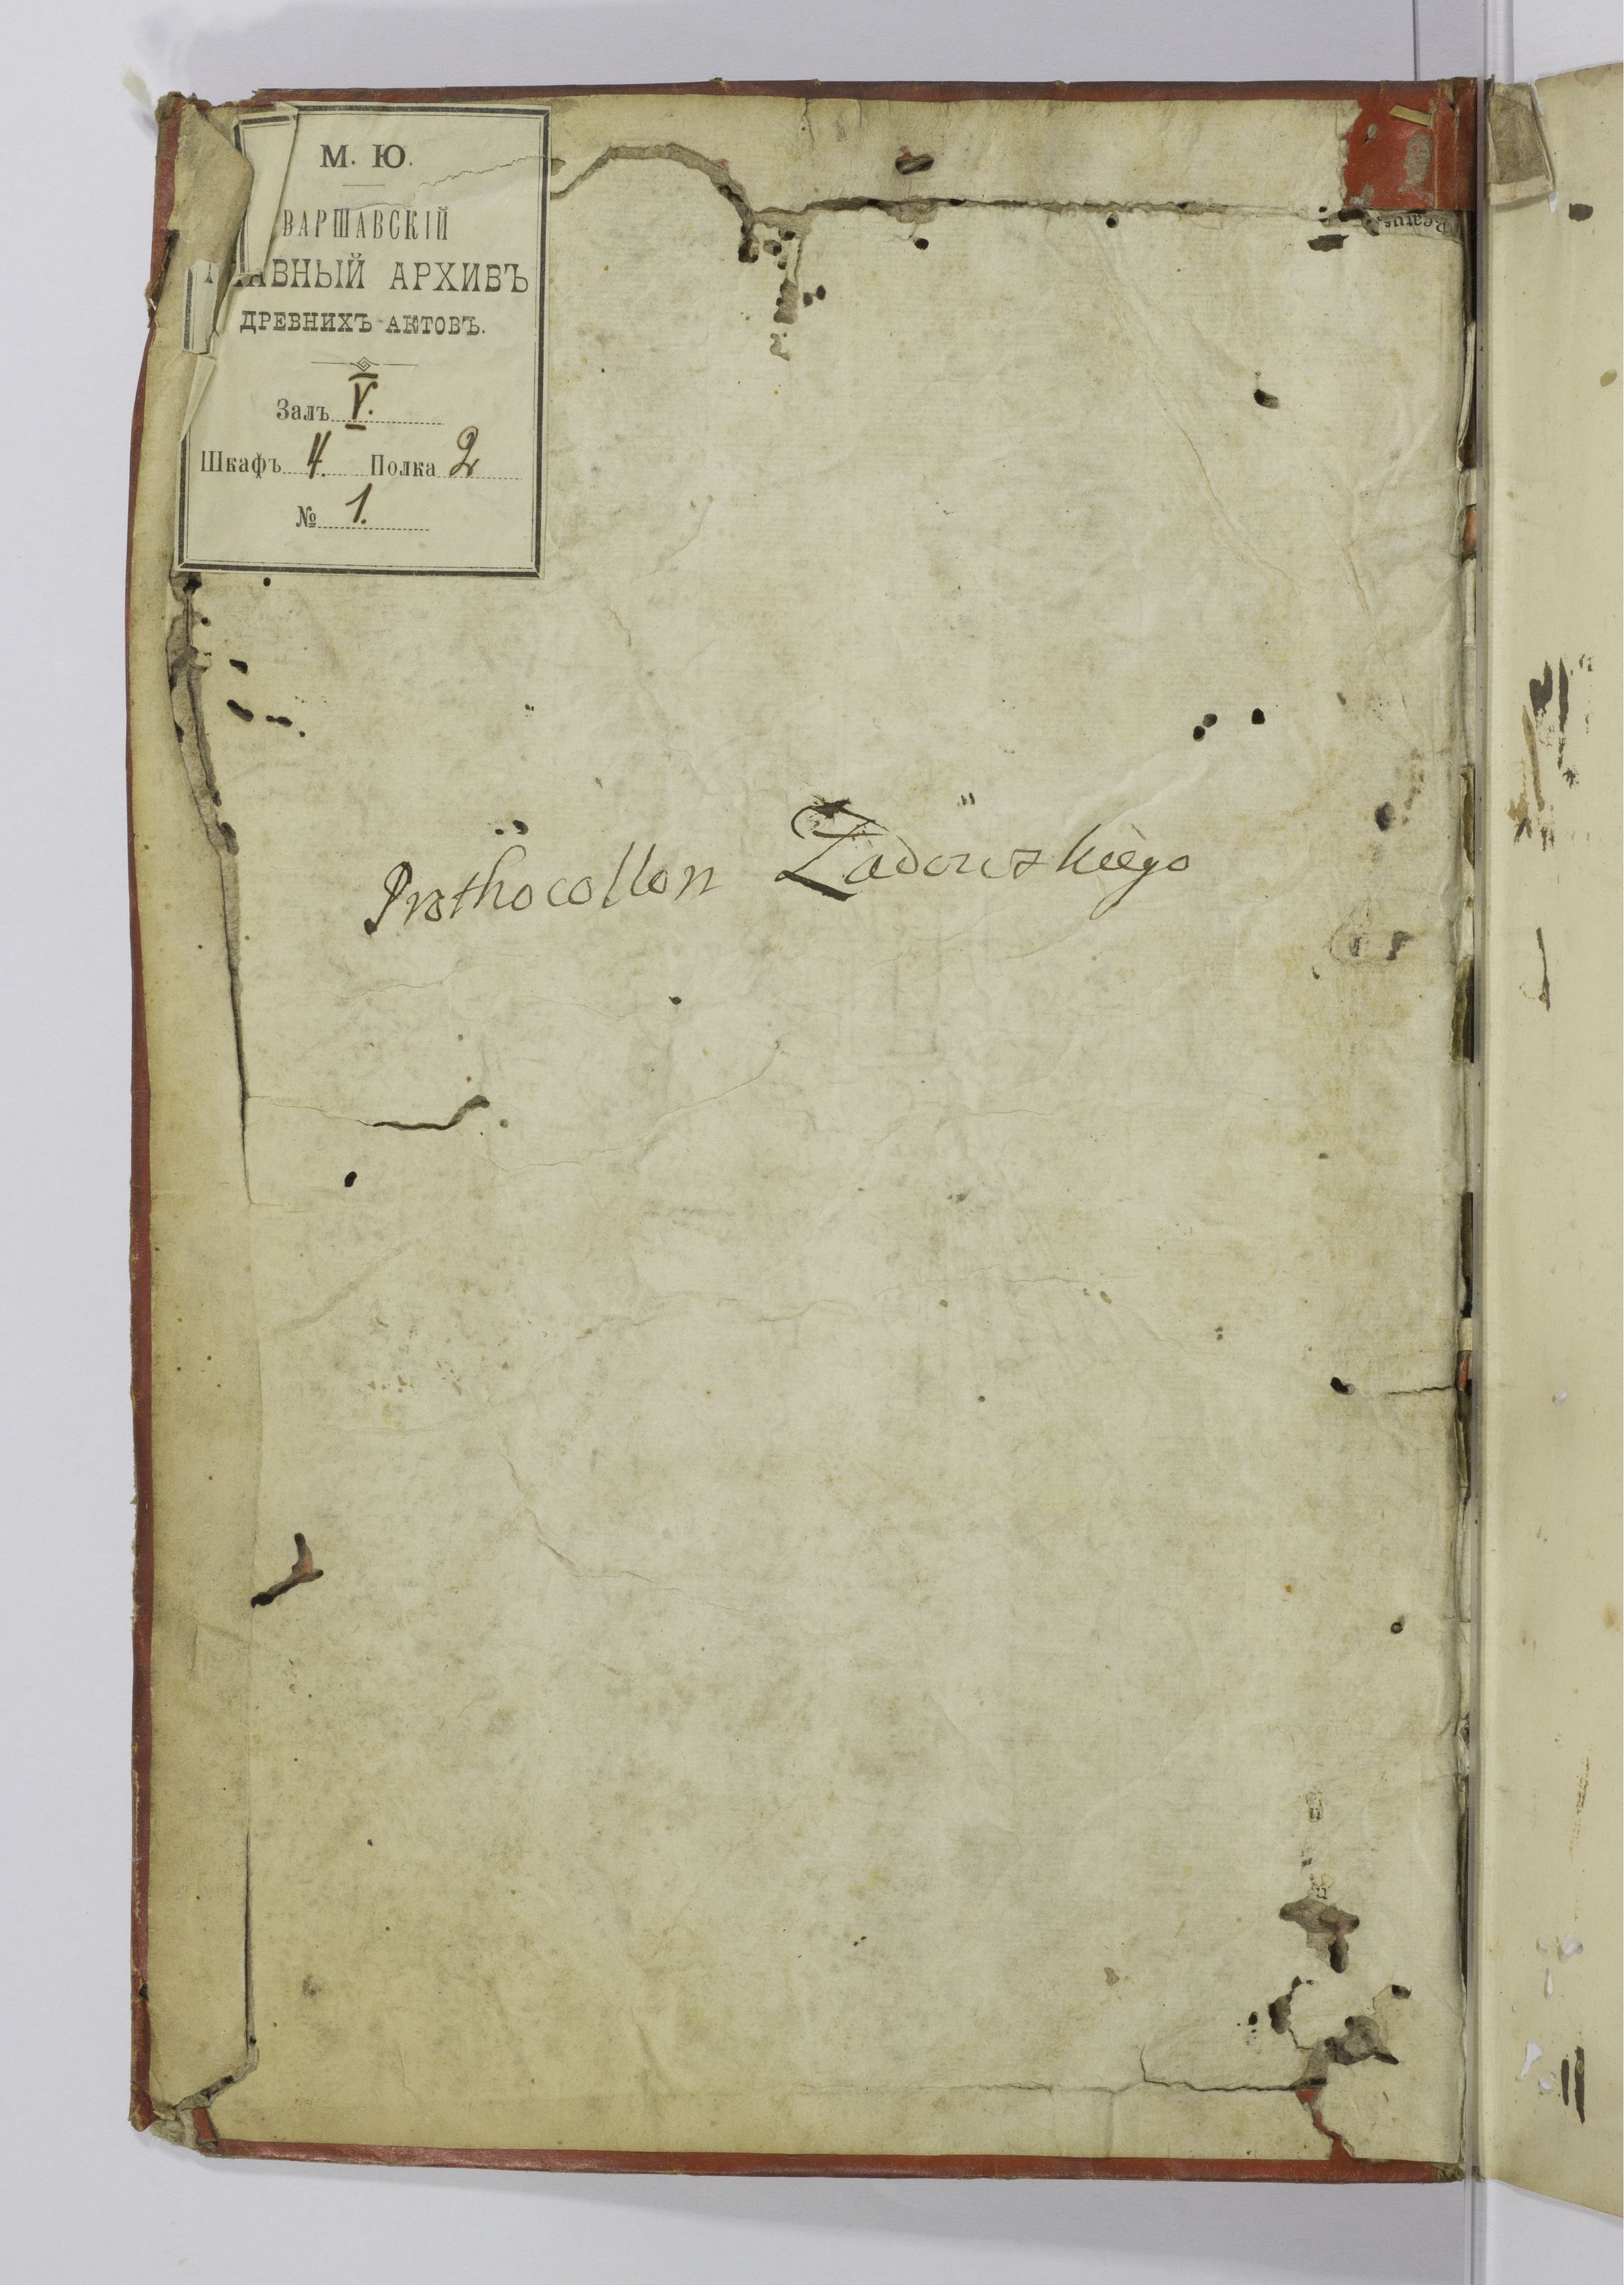 М. Ю.
ВАРШАВСКІЙ
АВНЫЙ АРХИВЪ
ДРЕВНИХЪ АКТОВЪ.
Залъ V.
Шкафъ 4. Полка 2
№ 1.
Beatus
Prothocollon Zadorskiego